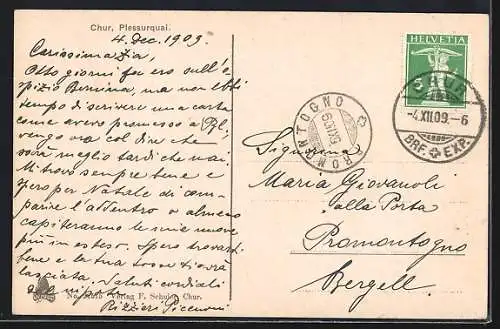 Chur, Plessurquai.
4. Dec. 1909.
Carissima zia,
Otto giorni fa ero sull'o
pizio Bernina, ma non ebbi
tempo di scrivere una carta
come avevo promesso a
vengo ora col dire che
sarà meglio tardi che mai.
Mi trovo sempre bene e
spero per Natale di com-
parire l'addentro o almeno
capiteranno le mie nuove
più in esteso. Spero trovarti
bene e la tua tosse ti avrà
lasciata. Saluti cordiali
nipote
Rizzieri Picenoni
No. Verlag F. Schuler, Chur.
HELVETIA
5
CHUR
-4.XII.09.-6
BRF. EXP.
PROMONTOGNO
5.XII.09
Signorina
Maria Giovanoli
alla Porta
Promontogno
Bergell